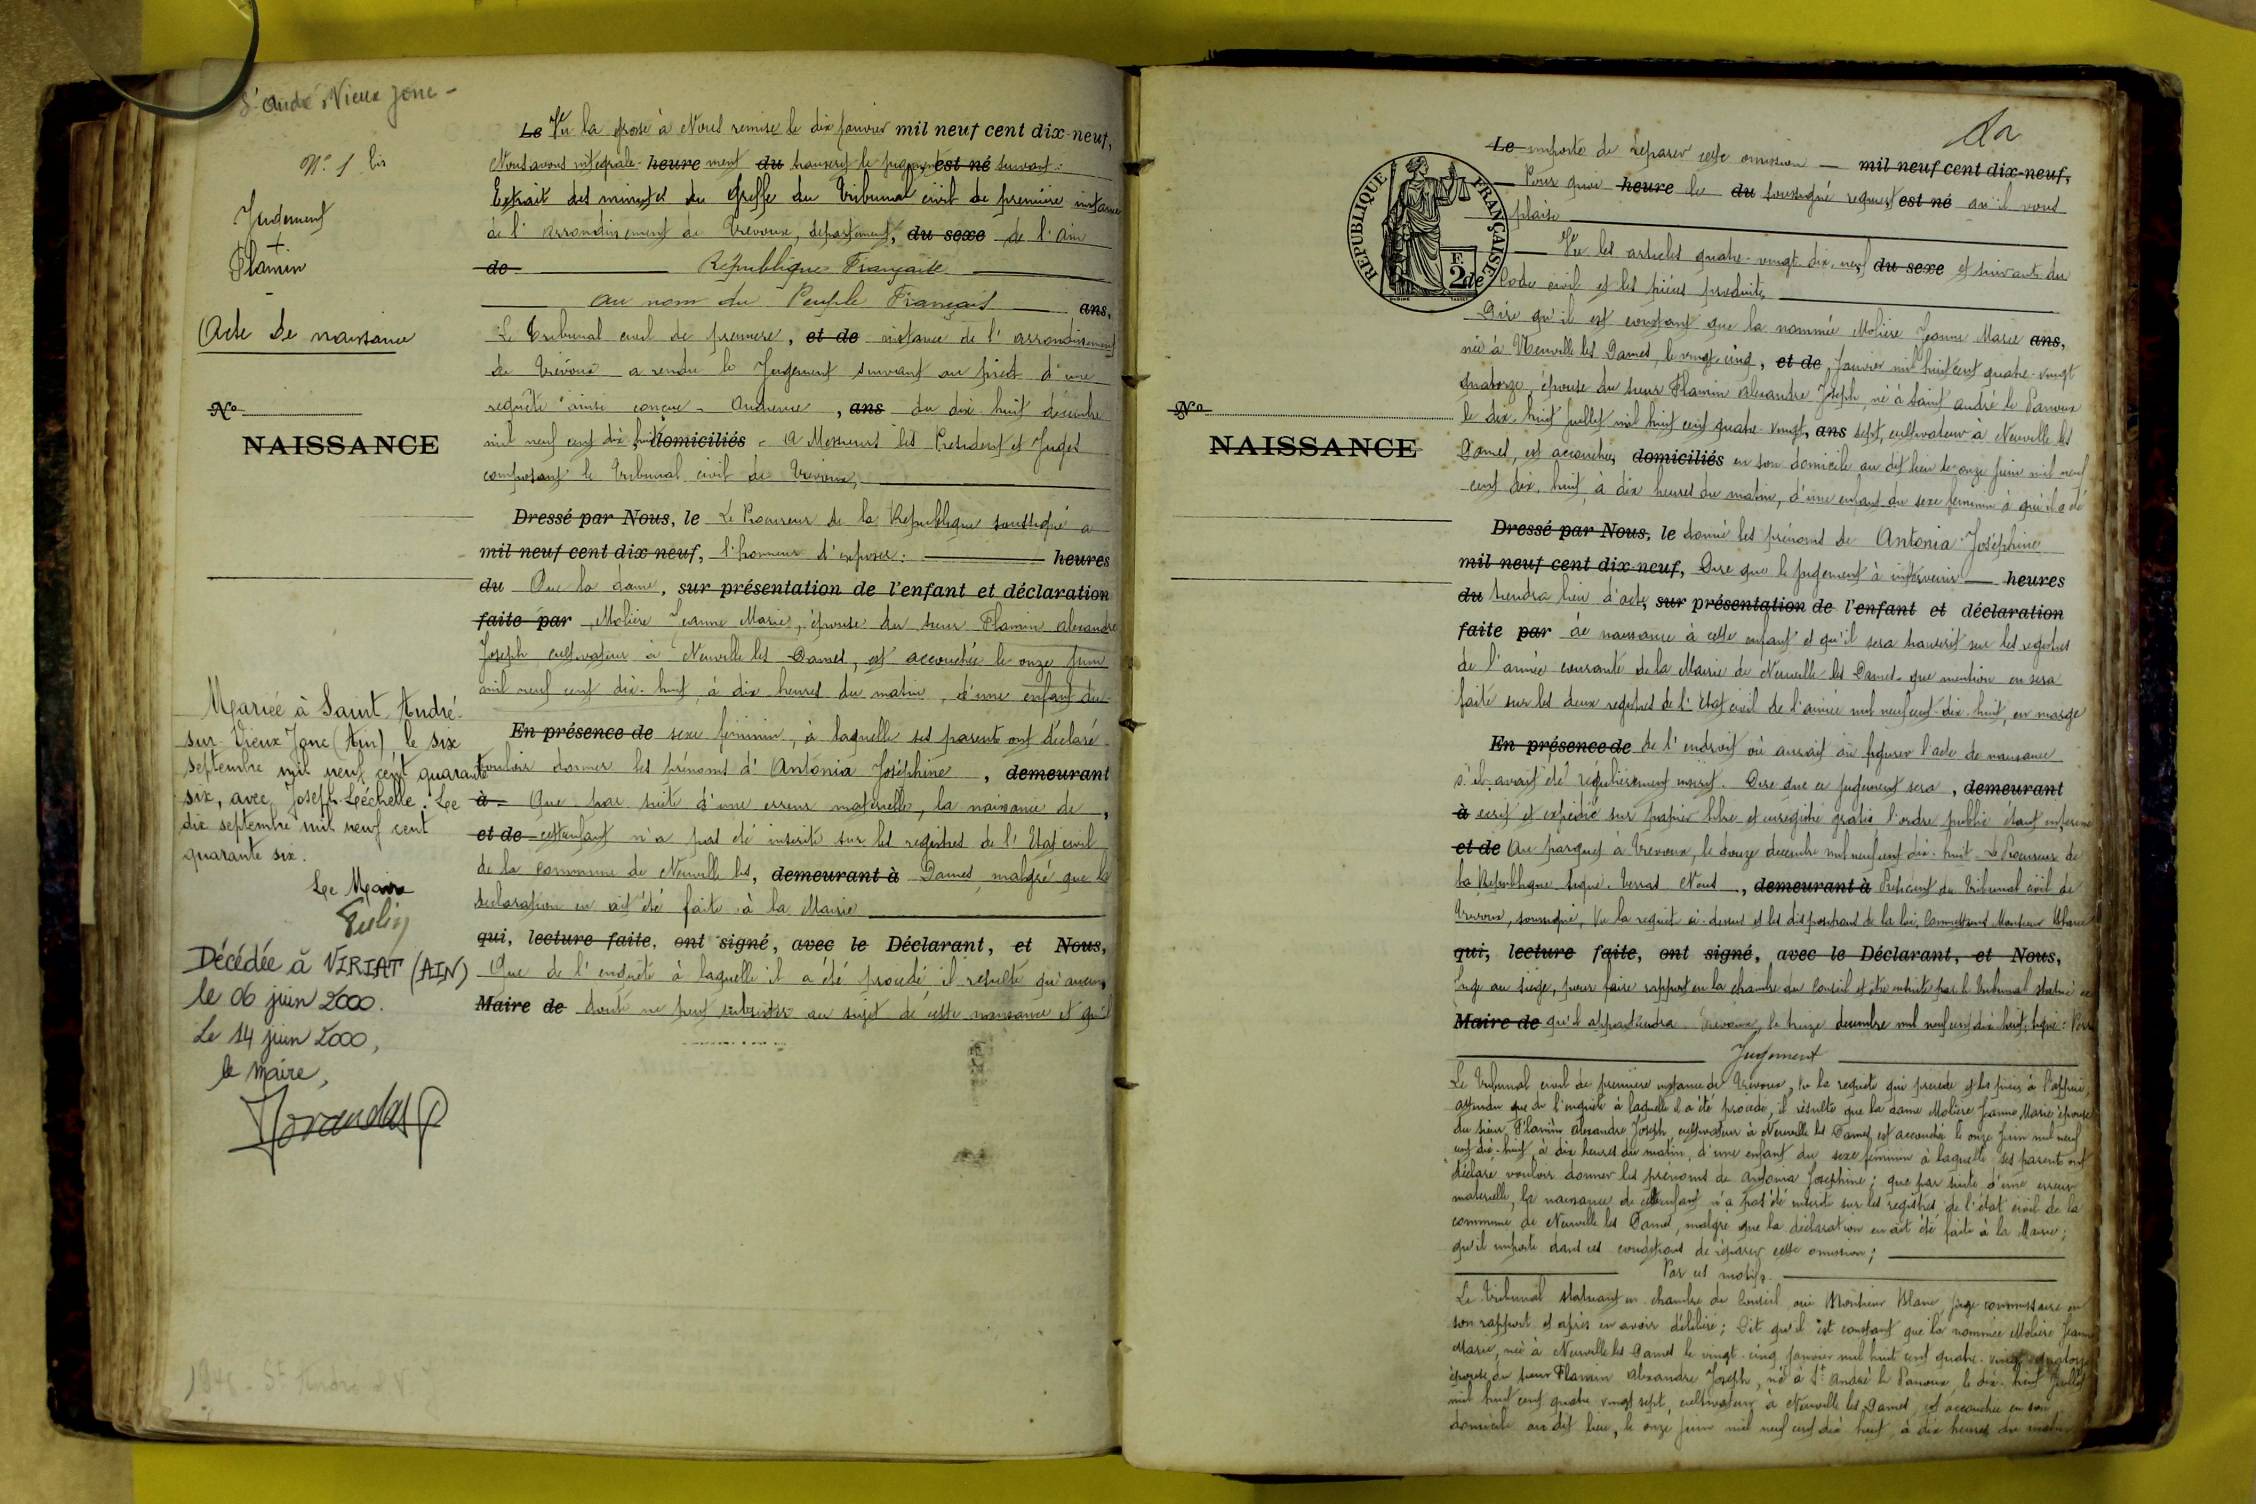 St André s/Vieux Jonc -
N° 1 bis
Jugement
+
Flamin
-
Acte de naissance
N°
NAISSANCE
Mariée à Saint-André-
sur Vieux Jonc (Ain), le six
septembre mil neuf cent quarante
six, avec Joseph Léchelle. Le
dix septembre mil neuf cent
quarante six.
Le Maire
Décédée à VIRIAT (AIN)
le 06 juin 2000.
Le 14 juin 2000,
le maire,
Le Vu la grosse à Nous remise le dix janvier mil neuf cent dix-neuf,
Nous avons intégrale- heure ment du transcrit le jugement est né suivant :
Extrait des minutes du Greffe du Tribunal civil de première instance
de l'arrondissement de Trévoux, département, du sexe de l'Ain
de République Française
au nom du Peuple Français ans,
Le Tribunal civil de première, et de instance de l'arrondissement
de Trévoux a rendu le Jugement suivant au pied d'une
requête ainsi conçue - Audience, ans du dix huit décembre
mil neuf cent dix huit domiciliés - A Messieurs les Président et Juges
composant le Tribunal civil de Trévoux,
Dressé par Nous, le Le Procureur de la République soussigné a
mil neuf cent dix neuf, l'honneur d'exposer : heures
du Que la dame, sur présentation de l'enfant et déclaration
faite par Molière Jeanne Marie, épouse du sieur Flamin Alexandre
Joseph cultivateur à Neuville les Dames, est accouchée le onze Juin
mil neuf cent dix-huit, à dix heures du matin, d'une enfant du
En présence de sexe féminin, à laquelle ses parents ont déclaré
vouloir donner les prénoms d'Antonia Joséphine, demeurant
à - Que par suite d'une erreur matérielle, la naissance de,
et de cette enfant n'a pas été inscrite sur les registres de l'Etat civil
de la commune de Neuville les, demeurant à Dames, malgré que la
déclaration en ait été faite à la Mairie
qui, lecture faite, ont signé, avec le Déclarant, et Nous,
Que de l'enquête à laquelle il a été procédé, il résulte qu'aucun
Maire de doute ne peut subsister au sujet de cette naissance et qu'il
1946 - St André s V J
REPUBLIQUE FRANÇAISE
2
N°
NAISSANCE
Le importe de réparer cette omission — mil neuf cent dix-neuf,
Pour quoi heure le du soussigné requiert est né qu'il vous
plaise
Vu les articles quatre-vingt-dix-neuf du sexe et suivants du
de Code civil et les pièces produites
Dire qu'il est constant que la nommée Molière Jeanne Marie ans,
née à Neuville les Dames, le vingt cinq, et de Janvier mil huit cent quatre-vingt
quatorze, épouse du sieur Flamin Alexandre Joseph, né à Saint André le Panoux
le dix-huit Juillet mil huit cent quatre-vingt, ans sept, cultivateur à Neuville les
Dames, est accouchée, domiciliés en son domicile au dit lieu le onze Juin mil neuf
cent dix-huit à dix heures du matin, d'une enfant du sexe féminin à qui il a été
Dressé par Nous, le donné les prénoms de Antonia Joséphine
mil neuf cent dix-neuf, Dire que le jugement à intervenir — heures
du tiendra lieu d'acte, sur présentation de l'enfant et déclaration
faite par de naissance à cette enfant et qu'il sera transcrit sur les registres
de l'année courante de la Mairie de Neuville les Dames - que mention en sera
faite sur les deux registres de l'Etat civil de l'année mil neuf cent dix-huit, en marge
En présence de de l'endroit où aurait dû figurer l'acte de naissance
s'il avait été régulièrement inscrit. Dire que ce jugement sera, demeurant
à écrit et expédié sur papier libre et enregistré gratis l'ordre public étant intéressé
et de Au parquet à Trévoux, le douze décembre mil neuf cent dix-huit. Le Procureur de
la République Signé. Nous, demeurant à Président du Tribunal civil de
Trévoux, soussigné, Vu la requête ci-dessus et les dispositions de la loi, Commettons Monsieur Blanc
qui, lecture faite, ont signé, avec le Déclarant, et Nous,
Juge au siège, pour faire rapport en la chambre du Conseil et être ensuite par le Tribunal statué ce
Maire de qu'il appartiendra. Trévoux, le treize décembre mil neuf cent dix huit, signé :
Jugement
Le Tribunal civil de première instance de Trévoux, Vu la requête qui précède et les pièces à l'appui,
attendu que de l'enquête à laquelle il a été procédé, il résulte que la dame Molière Jeanne Marie épouse
du sieur Flamin Alexandre Joseph, cultivateur à Neuville les Dames, est accouchée le onze Juin mil neuf
cent dix-huit, à dix heures du matin, d'une enfant du sexe féminin à laquelle ses parents ont
déclaré vouloir donner les prénoms de Antonia Joséphine ; que par suite d'une erreur
matérielle, la naissance de cette enfant n'a pas été inscrite sur les registres de l'état civil de la
commune de Neuville les Dames, malgré que la déclaration en ait été faite à la Mairie ;
qu'il importe dans ces conditions de réparer cette omission ;
Par ces motifs
Le Tribunal statuant en chambre du Conseil ouï Monsieur Blanc, juge commissaire en
son rapport et après en avoir délibéré ; Dit qu'il est constant que la nommée Molière Jeanne
Marie, née à Neuville les Dames le vingt-cinq janvier mil huit cent quatre-vingt quatorze
épouse du sieur Flamin Alexandre Joseph, né à St André le Panoux, le dix-huit Juillet
mil huit cent quatre vingt sept, cultivateur à Neuville les Dames, est accouchée en son
domicile au dit lieu, le onze Juin mil neuf cent dix huit, à dix heures du matin